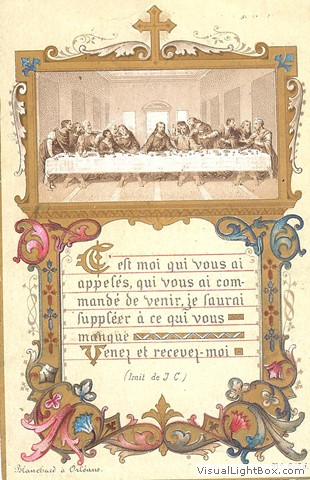 C'est moi qui vous ai
appelés, qui vous ai com-
mandé de venir, je saurai
suppléer à ce qui vous
manque
Venez et recevez-moi
(Imit de J C)
Blanchard à Orléans.
VisualLightBox.com